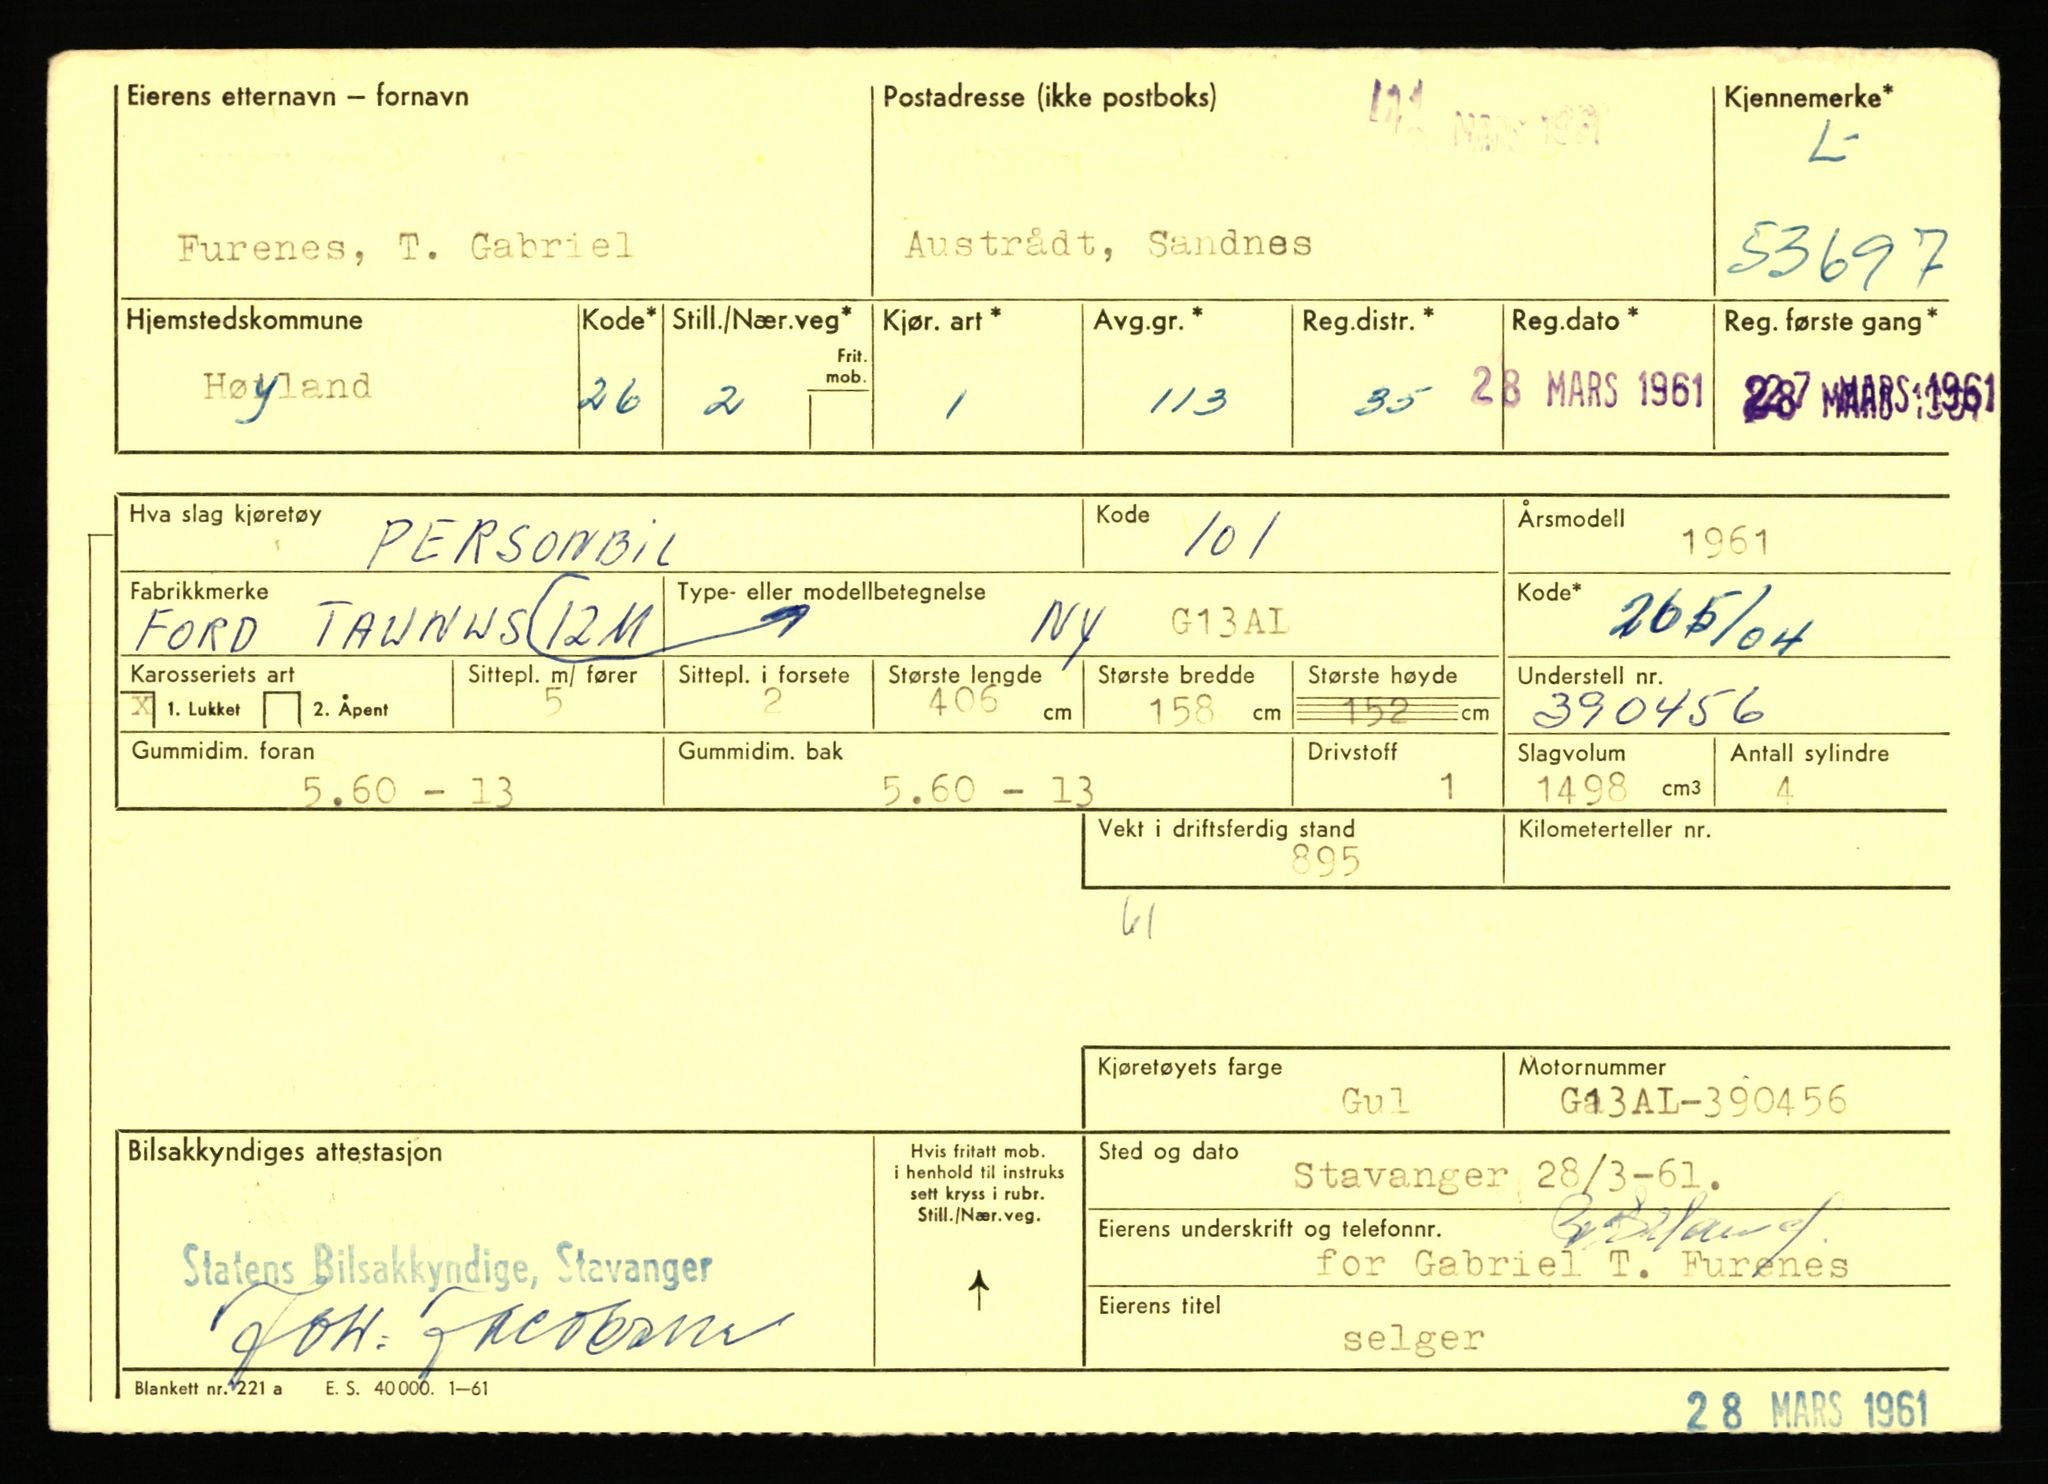 Eierens etternavn – fornavn
Postadresse (ikke postboks)
MARS 1961
Kjennemerke*
L-
Furenes, T. Gabriel
Austrådt, Sandnes
53697
Hjemstedskommune
Kode*
Still./Nær.veg*
Frit. mob.
Kjør. art *
Avg.gr. *
Reg.distr. *
Reg.dato *
Reg. første gang*
Høyland
26
2
1
113
35
28 MARS 1961
MARS 1961
Hva slag kjøretøy
PERSONBIL
Kode
101
Årsmodell
1961
Fabrikkmerke
FORD TAUNUS 12M
Type- eller modellbetegnelse
NY G13AL
Kode*
265/04
Karosseriets art
X 1. Lukket 2. Åpent
Sittepl. m/ fører
5
Sittepl. i forsete
2
Største lengde
406 cm
Største bredde
158 cm
Største høyde
152 cm
Understell nr.
390456
Gummidim. foran
5.60 - 13
Gummidim. bak
5.60 - 13
Drivstoff
1
Slagvolum
1498 cm3
Antall sylindre
4
Vekt i driftsferdig stand
895
Kilometerteller nr.
61
Kjøretøyets farge
Gul
Motornummer
G13AL-390456
Bilsakkyndiges attestasjon
Hvis fritatt mob.
i henhold til instruks
sett kryss i rubr.
Still./Nær.veg.
Sted og dato
Stavanger 28/3-61.
Eierens underskrift og telefonnr.
for Gabriel T. Furenes
Statens Bilsakkyndige, Stavanger
Joh. Jacobsen
Eierens titel
selger
Blankett nr. 221 a E. S. 40000. 1–61
28 MARS 1961